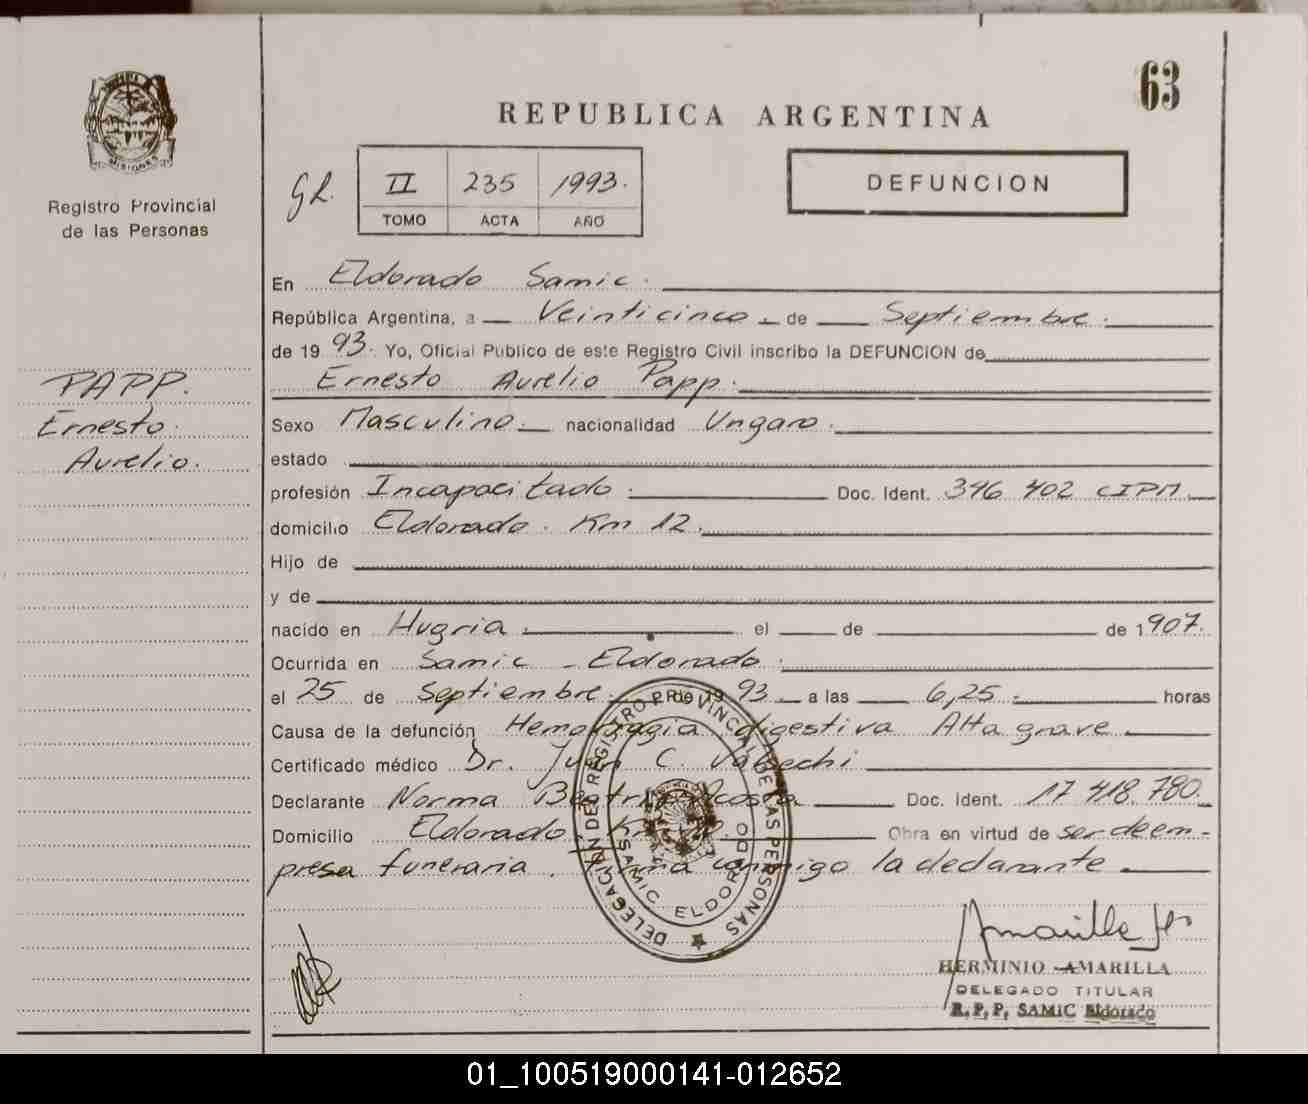 63
REPUBLICA ARGENTINA
MISIONES
Registro Provincial
de las Personas
II 235 1993.
TOMO ACTA AÑO
DEFUNCION
En Eldorado Samic.
República Argentina, a Veinticinco de Septiembre.
de 19 93. Yo, Oficial Público de este Registro Civil inscribo la DEFUNCION de
Ernesto Aurelio Papp.
PAPP.
Ernesto
Aurelio.
Sexo Masculino. nacionalidad Ungaro.
estado
profesión Incapacitado. Doc. Ident. 346 402 CIPM
domicilio Eldorado. Km 12.
Hijo de
y de
nacido en Hugria. el de de 1907.
Ocurrida en Samic - Eldorado.
el 25 de Septiembre. de 19 93 a las 6,25 horas
Causa de la defunción Hemorragia digestiva Alta grave
Certificado médico Dr. Juan C. Valsechi
Declarante Norma Beatriz Acosta Doc. Ident. 17 418 780.
Domicilio Eldorado. Km Obra en virtud de ser de em-
presa funeraria. Firma conmigo la declarante
DELEGACION DEL REGISTRO PROVINCIAL DE LAS PERSONAS
SAMIC ELDORADO
HERMINIO AMARILLA
DELEGADO TITULAR
R. P. P. SAMIC Eldorado
01_100519000141-012652